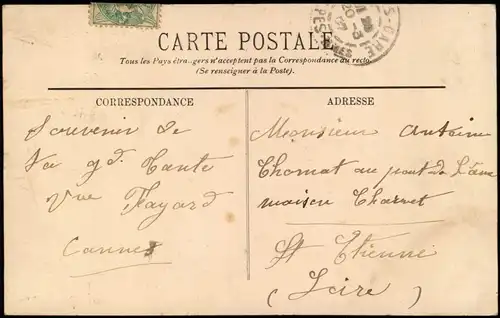 CARTE POSTALE
Tous les Pays étrangers n'acceptent pas la Correspondance au recto
(Se renseigner à la Poste).
CORRESPONDANCE
Souvenir de
ta gd. Tante
Vve Fayard
Cannes
ADRESSE
Monsieur Antoine
Thomat au pont de l'âne
maison Charvet
St Etienne
(Loire)
S-GARE